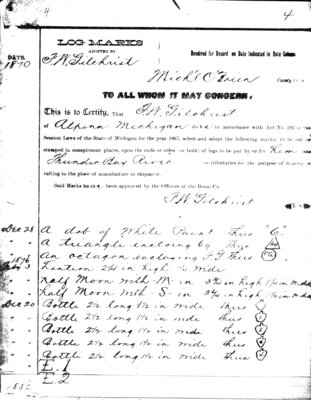 4
LOG MARKS
ADOPTED BY
F.W. Gilchrist
Received for Record on Date Indicated in Date Column
DATE
1870
Mich O'Brien
County
TO ALL WHOM IT MAY CONCERN.
This is to Certify, That F.W. Gilchrist
of Alpena Michigan in accordance with Act No.
Session Laws of the State of Michigan for the year 1867, select and adopt the following marks, to be
stamped in conspicuous places, upon the ends or sides or both of logs to be put by or for him
Thunder Bay River or tributaries for the purpose of
rafting to the place of manufacture or shipment.
Said Marks been approved by the Officers of the Boom Co.
F.W. Gilchrist
Dec 28 A dot of White Paint Thus
A triangle enclosing Thus
An octagon enclosing F G Thus
1876
3 2½ in high ½ wide
half Moon with M in high wide
half Moon with S in high
Dec 20 Bottle 2½ long 1½ in wide thus
Bottle 2½ long 1½ in wide thus
Bottle 2½ long 1½ in wide thus
Bottle 2½ long 1½ in wide thus
Bottle 2½ long 1½ in wide thus
E.1
E.2